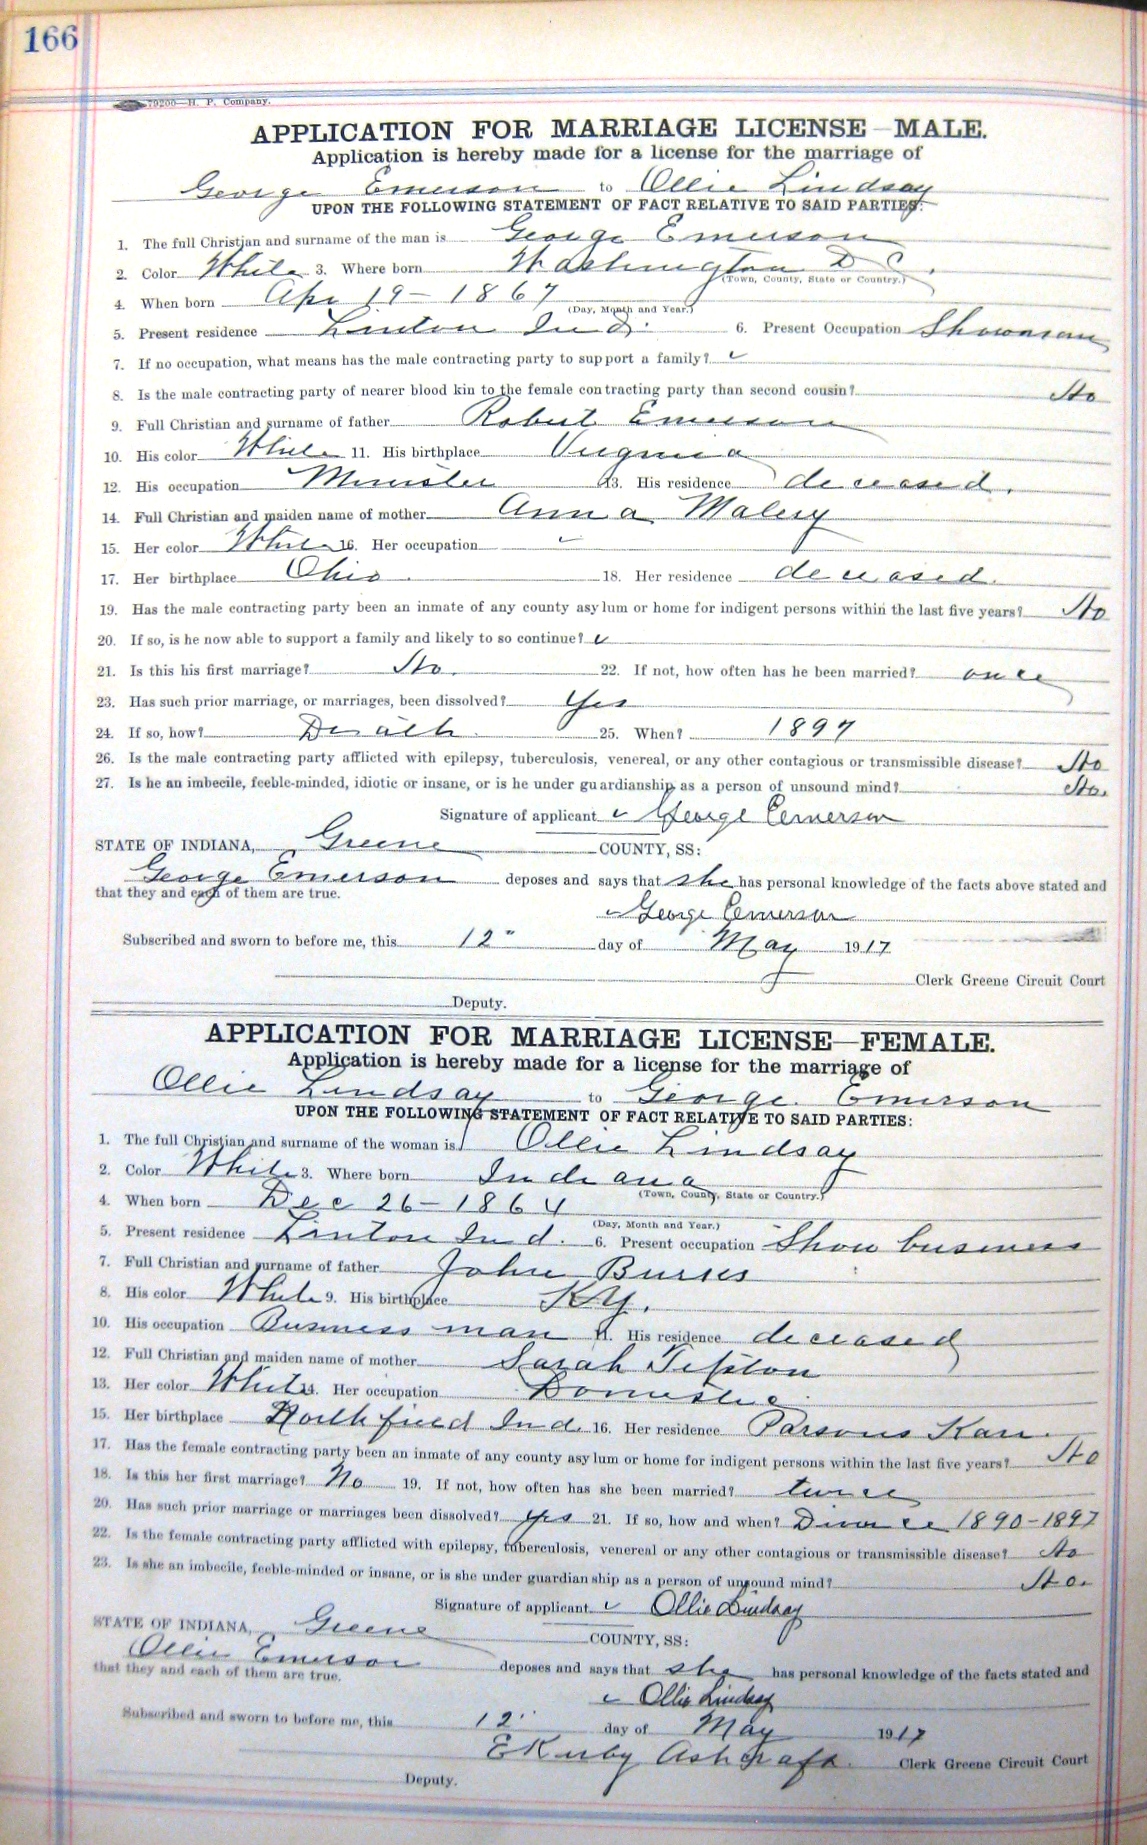 166
79200—H. P. Company.
APPLICATION FOR MARRIAGE LICENSE—MALE.
Application is hereby made for a license for the marriage of
George Emerson to Ollie Lindsay
UPON THE FOLLOWING STATEMENT OF FACT RELATIVE TO SAID PARTIES:
1. The full Christian and surname of the man is George Emerson
2. Color White 3. Where born Washington D C.
(Town, County, State or Country.)
4. When born Apr 19 - 1867
(Day, Month and Year.)
5. Present residence Linton Ind. 6. Present Occupation Showman
7. If no occupation, what means has the male contracting party to support a family? ✓
8. Is the male contracting party of nearer blood kin to the female contracting party than second cousin? No
9. Full Christian and surname of father Robert Emerson
10. His color White 11. His birthplace Virginia
12. His occupation Minister 13. His residence deceased.
14. Full Christian and maiden name of mother Anna Malery
15. Her color White 16. Her occupation ✓
17. Her birthplace Ohio. 18. Her residence deceased.
19. Has the male contracting party been an inmate of any county asylum or home for indigent persons within the last five years? No
20. If so, is he now able to support a family and likely to so continue? ✓
21. Is this his first marriage? No. 22. If not, how often has he been married? once
23. Has such prior marriage, or marriages, been dissolved? Yes
24. If so, how? Death. 25. When? 1897
26. Is the male contracting party afflicted with epilepsy, tuberculosis, venereal, or any other contagious or transmissible disease? No
27. Is he an imbecile, feeble-minded, idiotic or insane, or is he under guardianship as a person of unsound mind? No.
Signature of applicant ✓ George Emerson
STATE OF INDIANA, Greene COUNTY, SS:
George Emerson deposes and says that she has personal knowledge of the facts above stated and
that they and each of them are true.
✓ George Emerson
Subscribed and sworn to before me, this 12" day of May 1917
Clerk Greene Circuit Court
Deputy.
APPLICATION FOR MARRIAGE LICENSE—FEMALE.
Application is hereby made for a license for the marriage of
Ollie Lindsay to George Emerson
UPON THE FOLLOWING STATEMENT OF FACT RELATIVE TO SAID PARTIES:
1. The full Christian and surname of the woman is Ollie Lindsay
2. Color White 3. Where born Indiana
(Town, County, State or Country.)
4. When born Dec 26 - 1864
(Day, Month and Year.)
5. Present residence Linton Ind. 6. Present occupation Show business
7. Full Christian and surname of father John
8. His color White 9. His birthplace Ky.
10. His occupation Business man 11. His residence deceased
12. Full Christian and maiden name of mother Sarah Tipton
13. Her color White 14. Her occupation Domestic
15. Her birthplace Northfield Ind. 16. Her residence Parsons Kan.
17. Has the female contracting party been an inmate of any county asylum or home for indigent persons within the last five years? No
18. Is this her first marriage? No 19. If not, how often has she been married? twice
20. Has such prior marriage or marriages been dissolved? Yes 21. If so, how and when? Divorce 1890-1897
22. Is the female contracting party afflicted with epilepsy, tuberculosis, venereal or any other contagious or transmissible disease? No
23. Is she an imbecile, feeble-minded or insane, or is she under guardianship as a person of unsound mind? No.
Signature of applicant ✓ Ollie Lindsay
STATE OF INDIANA, Greene COUNTY, SS:
Ollie Emerson deposes and says that she has personal knowledge of the facts stated and
that they and each of them are true.
✓ Ollie Lindsay
Subscribed and sworn to before me, this 12" day of May 1917
E Kirby Ashcraft. Clerk Greene Circuit Court
Deputy.